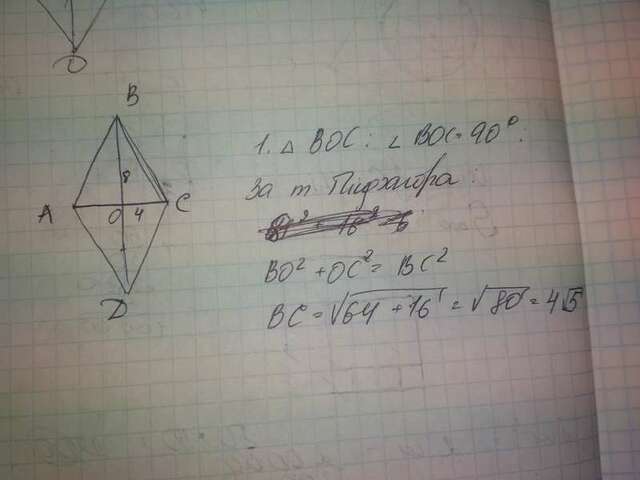 D
B
8
A O 4 C
D
1. △ BOC: ∠ BOC = 90°:
За т. Пифагора:
BO² + OC² = BC²
BC = √64 + 16 = √80 = 4√5